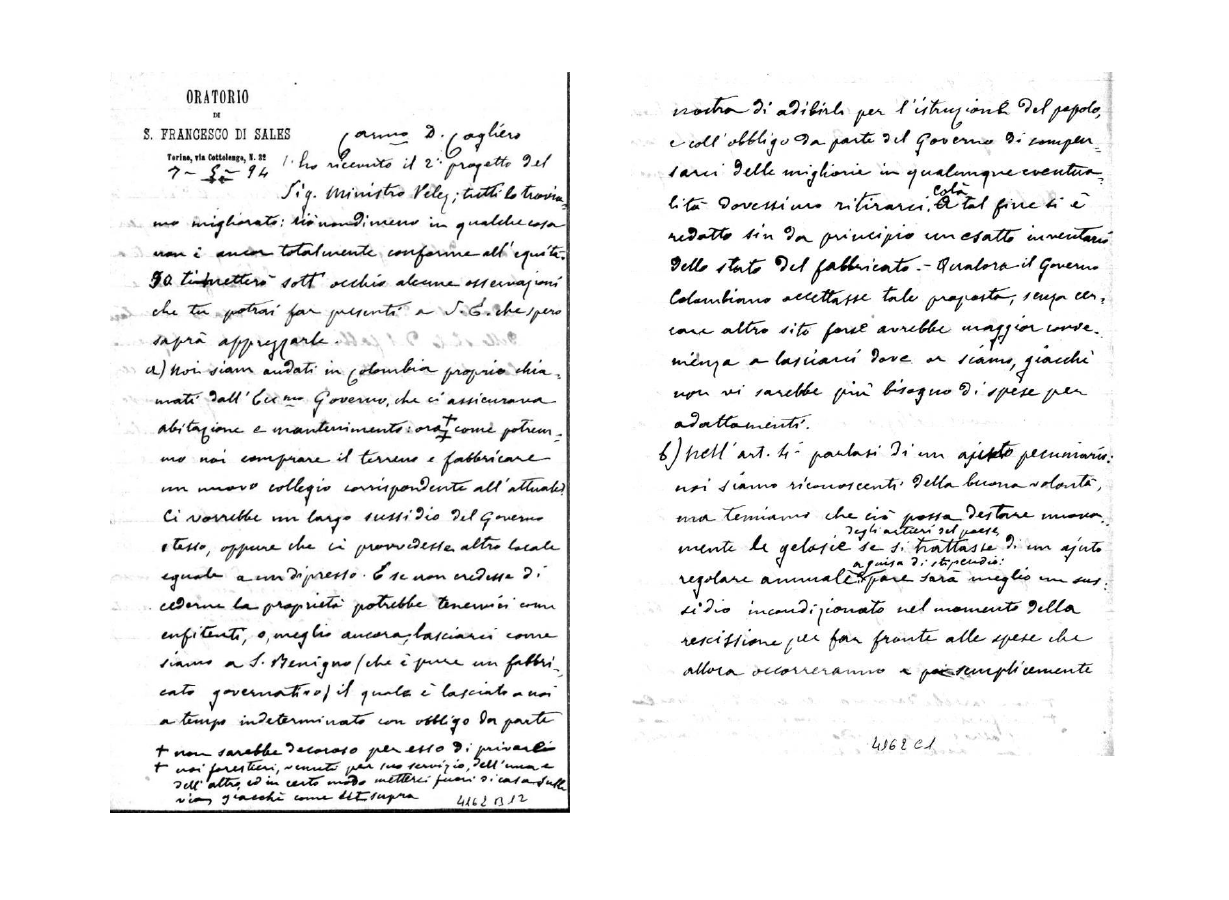 ORATORIO
DI
S. FRANCESCO DI SALES
Torino, via Cottolengo, N. 32
7 - 5 - 94
Carmo D. Cagliero
ho ricevuto il 2° progetto del
Sig. Ministro Velez; tutti lo trovia=
mo migliorato: ciò nondimeno in qualche cosa
non è ancor totalmente conforme all' equità.
Io ti metterò sott' occhio alcune osservazioni
che tu potrai far presenti a S. E. che spero
saprà apprezzarle.
a) Noi siam andati in Colombia proprio chia=
mati dall' Eccmo Governo, che ci assicurava
abitazione e mantenimento: ora + come potrem=
mo noi comprare il terreno e fabbricare
un nuovo collegio corrispondente all' attuale?
Ci vorrebbe un largo sussidio del Governo
stesso, oppure che ci provvedesse altro locale
eguale a un dipresso. E se non credesse di
cederne la proprietà potrebbe tenervici come
enfiteuti, o, meglio ancora, lasciarci come
siamo a S. Benigno (che è pure un fabbri=
cato governativo) il quale è lasciato a noi
a tempo indeterminato con obbligo da parte
+ non sarebbe decoroso per esso di privarci
+ noi forestieri, venuti per suo servizio, dell' una e
dell' altro, ed in certo modo metterci fuori di casa sulla
via, giacchè come supra
4162 B 12
nostra di adibirlo per l' istruzione del popolo,
e coll' obbligo da parte del Governo di compen=
sarci delle migliorie in qualunque eventua=
lità dovessimo ritirarci. A tal fine si è
colà
redatto sin da principio un esatto inventario
dello stato del fabbricato. - Qualora il Governo
Colombiano accettasse tale proposta, senza cer=
care altro sito forse avrebbe maggior conve=
nienza a lasciarci dove or siamo, giacchè
non vi sarebbe più bisogno di spese per
adattamenti.
b) Nell' art. parlasi di un ajuto pecuniario:
noi siamo riconoscenti della buona volontà,
ma temiamo che ciò possa destare nuova=
degli artieri del paese,
mente le gelosie se si trattasse di un ajuto
a guisa di stipendio:
regolare annuale: pare sarà meglio un sus=
sidio incondizionato nel momento della
rescissione per far fronte alle spese che
allora occorreranno e poi semplicemente
4162 C1